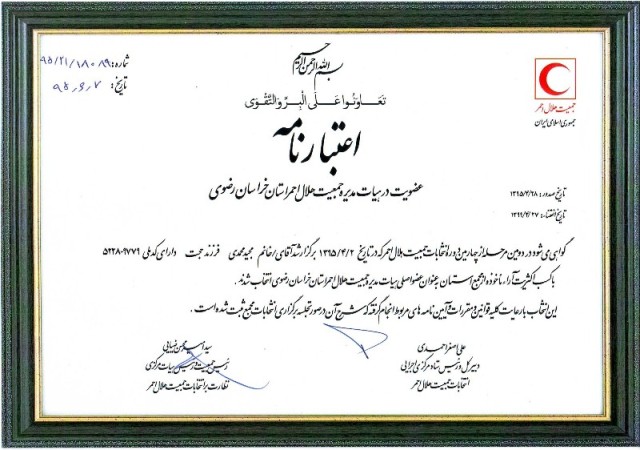 بسم الله الرحمن الرحیم
شماره: ۹۵/۲۱/۱۸۰۸۹
تاریخ: ۹۵,۶,۷
جمعیت هلال احمر
جمهوری اسلامی ایران
تعاونوا علی البر و التقوی
اعتبارنامه
عضویت در هیات مدیره جمعیت هلال احمر استان خراسان رضوی
تاریخ صدور: ۱۳۹۵/۴/۲۸
تاریخ انقضاء: ۱۳۹۹/۴/۲۷
گواهی می شود در دومین مرحله از چهارمین دوره انتخابات جمعیت هلال احمر که در تاریخ ۱۳۹۵/۴/۲ برگزار شد آقای/خانم مجید محمدی فرزند حجت دارای کد ملی ۵۲۲۸۰۹۷۷۹
با کسب اکثریت آراء ماخوذه از مجمع استان به عنوان عضو اصلی هیات مدیره جمعیت هلال احمر استان خراسان رضوی انتخاب شدند.
این انتخاب با رعایت کلیه قوانین و مقررات و آیین نامه های مربوط انجام گرفته که شرح آن در صورتجلسه برگزاری انتخابات مجمع ثبت شده است.
علی اصغر احمدی
دبیر کل و رئیس ستاد مرکزی اجرایی
انتخابات جمعیت هلال احمر
سید امیر محسن ضیایی
رئیس جمعیت و رئیس هیات مرکزی
نظارت بر انتخابات جمعیت هلال احمر